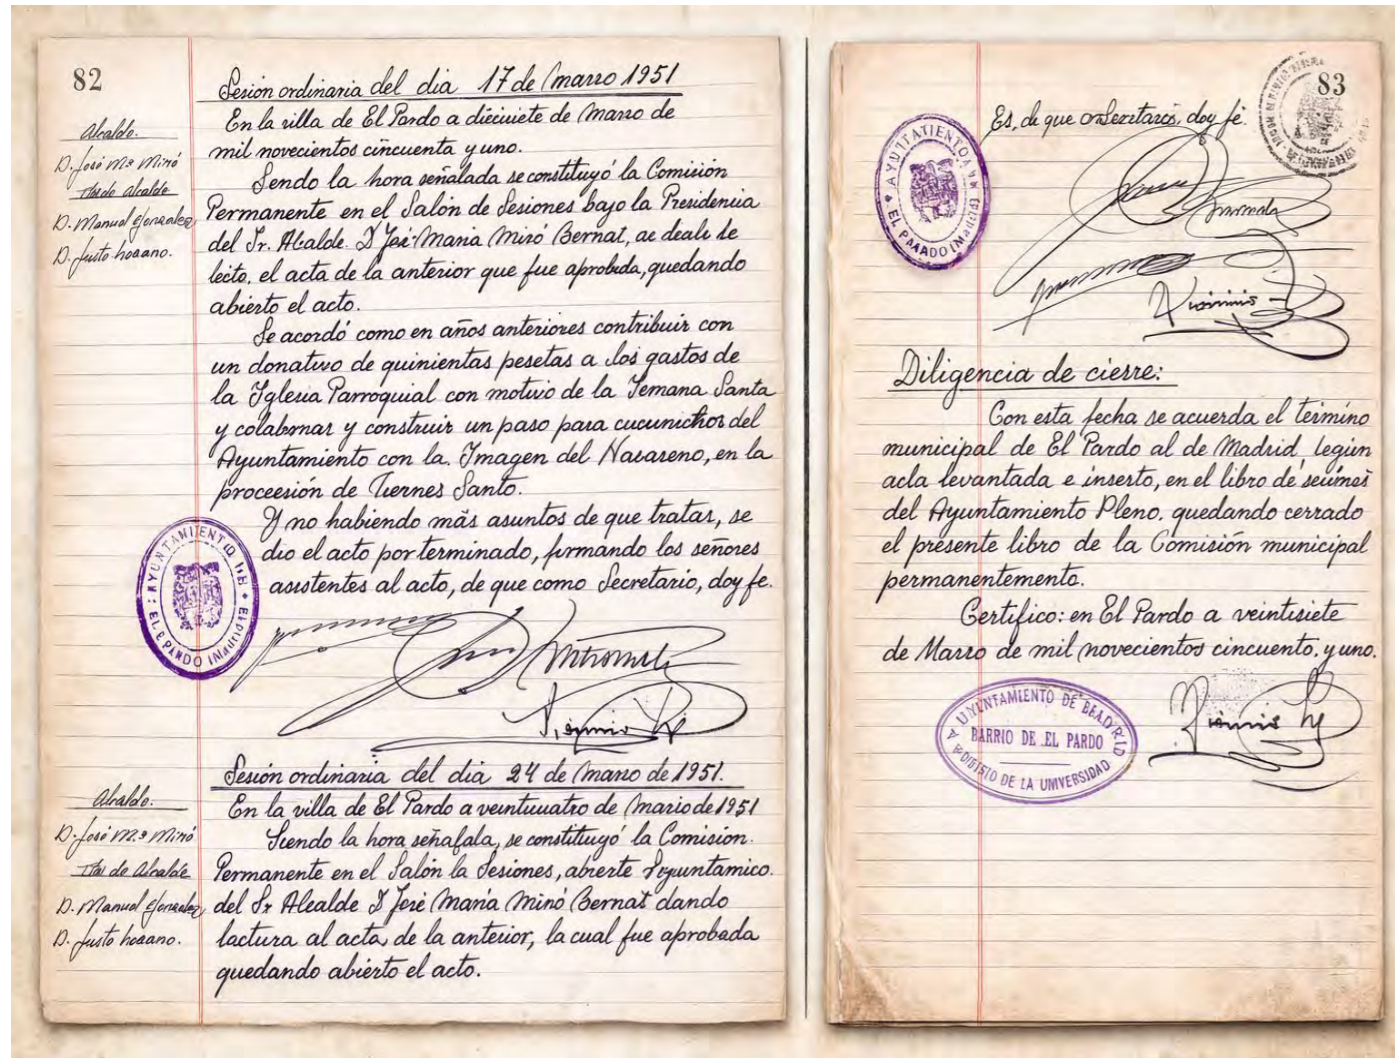 82
Sesión ordinaria del dia 17 de Marzo 1951
Alcalde.
D. José Mª Miró
Tte de Alcalde
D. Manuel Gonzalez
D. Justo Lozano.
En la villa de El Pardo a dieciniete de Marzo de
mil novecientos cincuenta y uno.
Sendo la hora señalada se constituyó la Comisión
Permanente en el Salón de Sesiones bajo la Presidencia
del Sr. Alcalde. D José Maria Miró Bernat, se
lecto, el acta de la anterior que fue aprobada, quedando
abierto el acto.
Se acordó como en años anteriores contribuir con
un donativo de quinientas pesetas a los gastos de
la Iglesia Parroquial con motivo de la Semana Santa
y colabonar y construir un paso para del
Ayuntamiento con la. Imagen del Nasareno, en la
proceesión de Tiernes Santo.
Y no habiendo más asuntos de que tratas, se
dio el acto por terminado, firmando los señores
asistentes al acto, de que como Secretario, doy fe.
AYUNTAMIENTO DE
EL PARDO (Madrid)
Sesión ordinaria del dia 24 de Marzo de 1951.
Alcalde.
D. José M.ª Miró
Tte de Alcalde
D. Manuel Gonzalez
D. Justo Lozano.
En la villa de El Pardo a veintuuatro de Mario de 1951
Siendo la hora señafala, se constituyó la Comisión.
Permanente en el Salón la Sesiones, abierte
del Sr Alealde D José María Miró Bernat dando
lactura al acta, de la anterior, la cual fue aprobada
quedando abierto el acto.
83
Es, de que doy fe.
AYUTATIENTO
EL PAADO (Madrid)
Diligencia de cierre:
Con esta fecha se acuerda el término
municipal de El Pardo al de Madrid, legún
acla levantada e inserto, en el libro de seumes
del Ayuntamiento Pleno. quedando cerrado
el presente libro de la Comisión municipal
permanentemento.
Certifico: en El Pardo a veintisiete
de Marzo de mil novecientos cincuento, y uno.
UNYNTAMIENTO DE BEADRID
BARRIO DE EL PARDO
DE LA UNIVERSIDAD